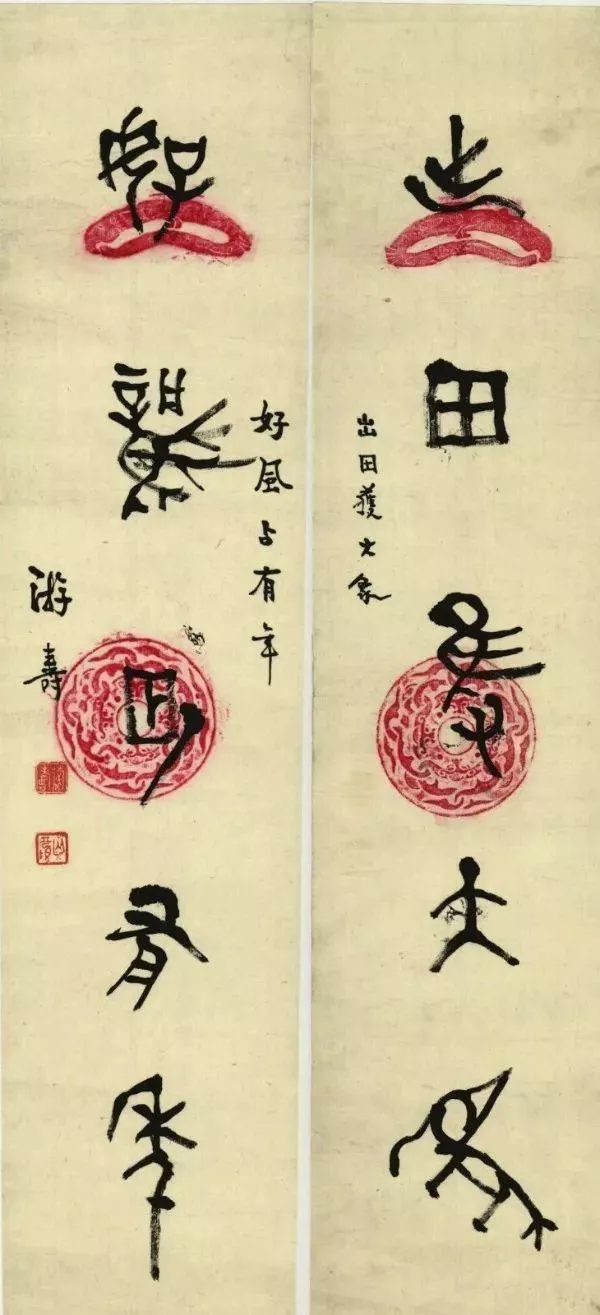 出田獲大象
出田獲大象
好風占有年
好風占有年
游壽